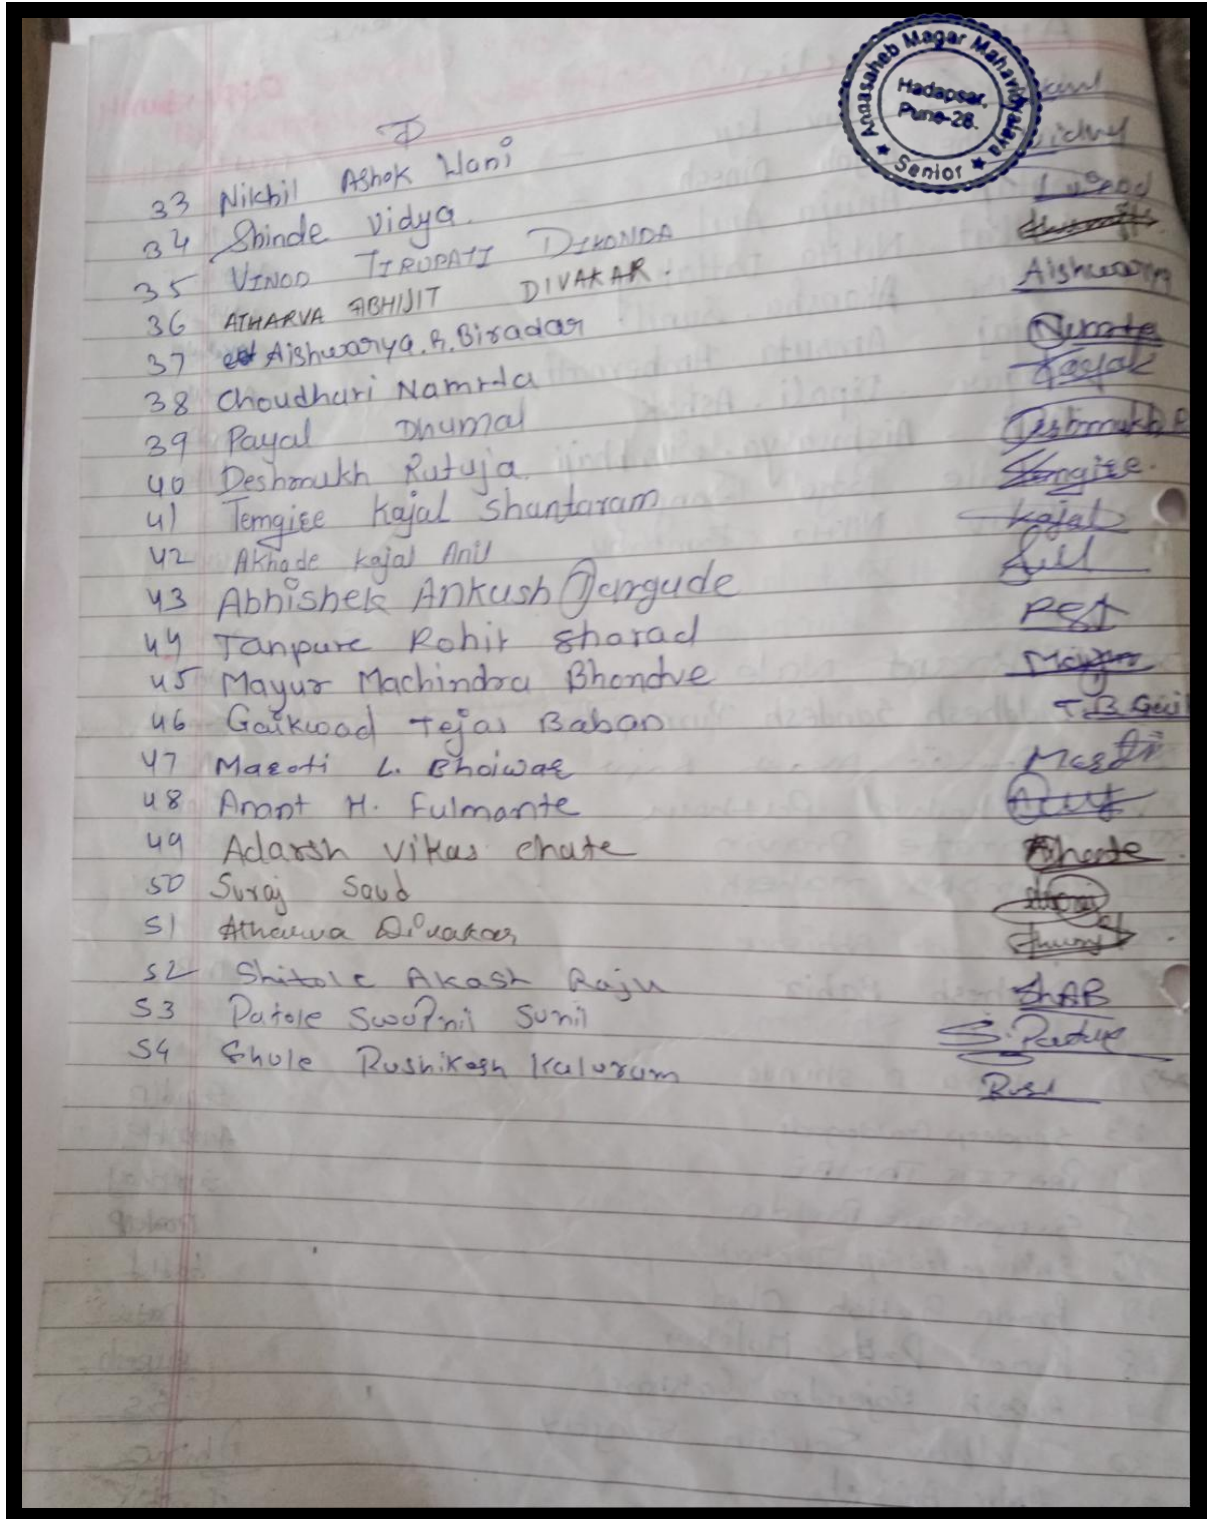 Annasaheb Magar Mahavidyalaya
Hadapsar,
Pune-28.
★ Senior ★
33 Nikhil Ashok Wani
34 Shinde Vidya.
35 VINOD TIRUPATI DIKONDA
36 ATHARVA ABHIJIT DIVAKAR.
37 Aishwarya.R.Biradar Aishwarya
38 Choudhari Namrta Namrta
39 Payal Dhumal Payal
40 Deshmukh Rutuja. Deshmukh R
41 Temgire Kajal Shantaram Temgire.
42 Akhade Kajal Anil Kajal
43 Abhishek Ankush Jargude
44 Tanpure Rohit Sharad
45 Mayur Machindra Bhondve Mayur
46 Gaikwad Tejas Baban T.B.Gai
47 Maroti L. Bhoiwar
48 Anant H. Fulmante
49 Adarsh Vikas Chate
50 Suraj Saud
51 Atharva Divakar
52 Shitole Akash Raju
53 Patole Swapnil Sunil
54 Ghule Rushikesh Kaluram